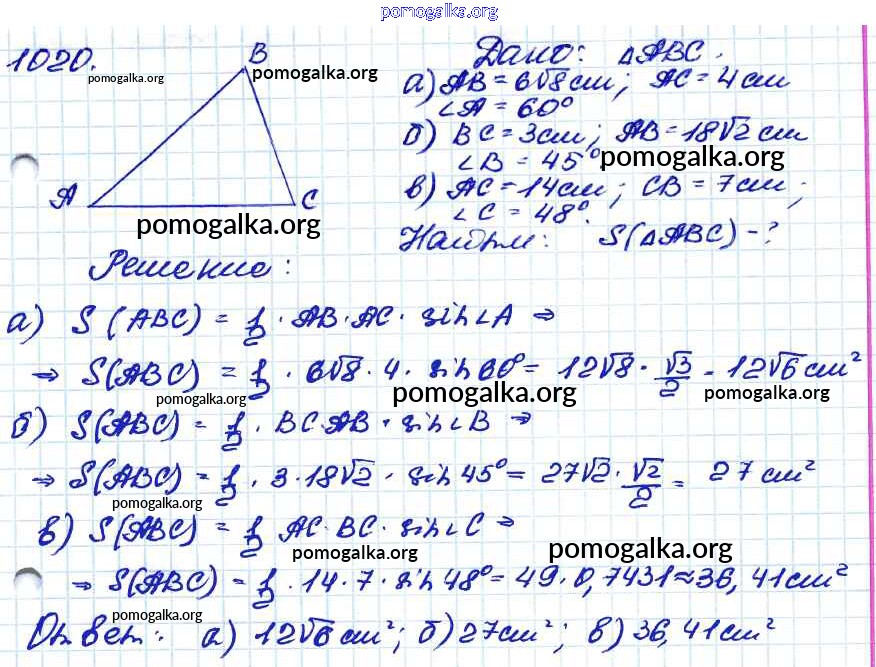 pomogalka.org
1020.
pomogalka.org
B
pomogalka.org
A
C
pomogalka.org
Дано: △ABC.
а) AB = 6√8 см; AC = 4 см
∠A = 60°
б) BC = 3 см; AB = 18√2 см
∠B = 45°
pomogalka.org
в) AC = 14 см; CB = 7 см;
∠C = 48°.
Найти: S(△ABC) - ?
Решение:
а) S (ABC) = 1/2 · AB · AC · sin∠A ⇒
⇒ S(ABC) = 1/2 · 6√8 · 4 · sin 60° = 12√8 · √3/2 = 12√6 см²
pomogalka.org
pomogalka.org
pomogalka.org
б) S(ABC) = 1/2 · BC · AB · sin∠B ⇒
⇒ S(ABC) = 1/2 · 3 · 18√2 · sin 45° = 27√2 · √2/2 = 27 см²
pomogalka.org
в) S(ABC) = 1/2 AC · BC · sin∠C ⇒
pomogalka.org
pomogalka.org
⇒ S(ABC) = 1/2 · 14 · 7 · sin 48° = 49 · 0,7431 ≈ 36,41 см²
pomogalka.org
Ответ: а) 12√6 см²; б) 27 см²; в) 36,41 см²